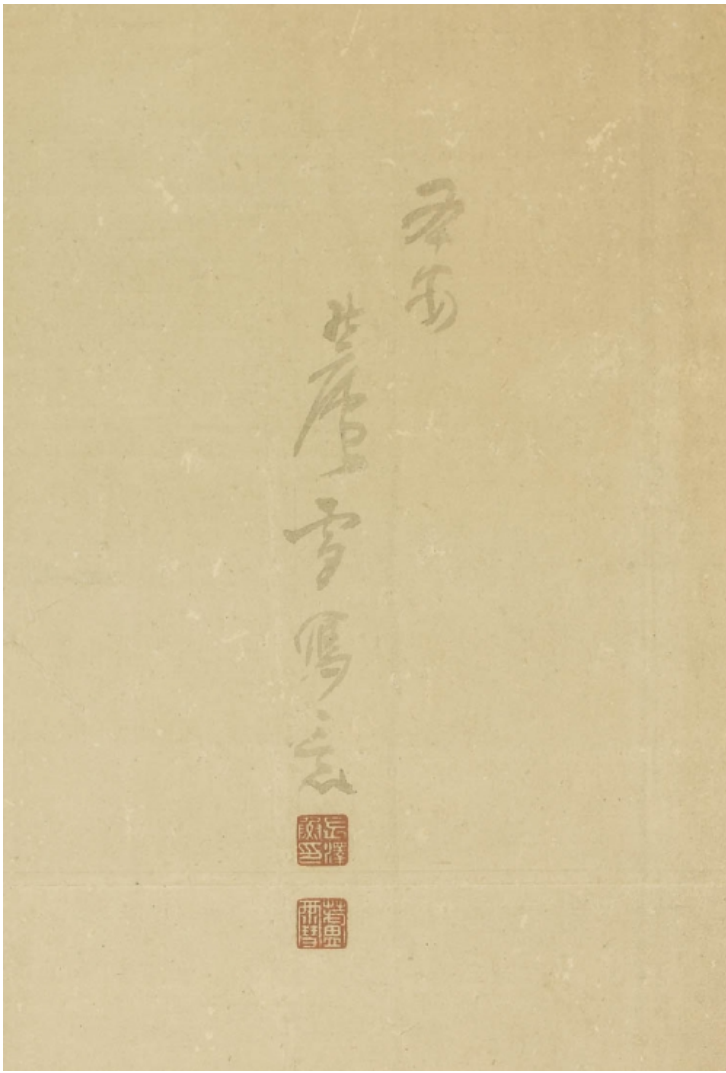 平安
蘆雪寫意
長澤
蘆雪